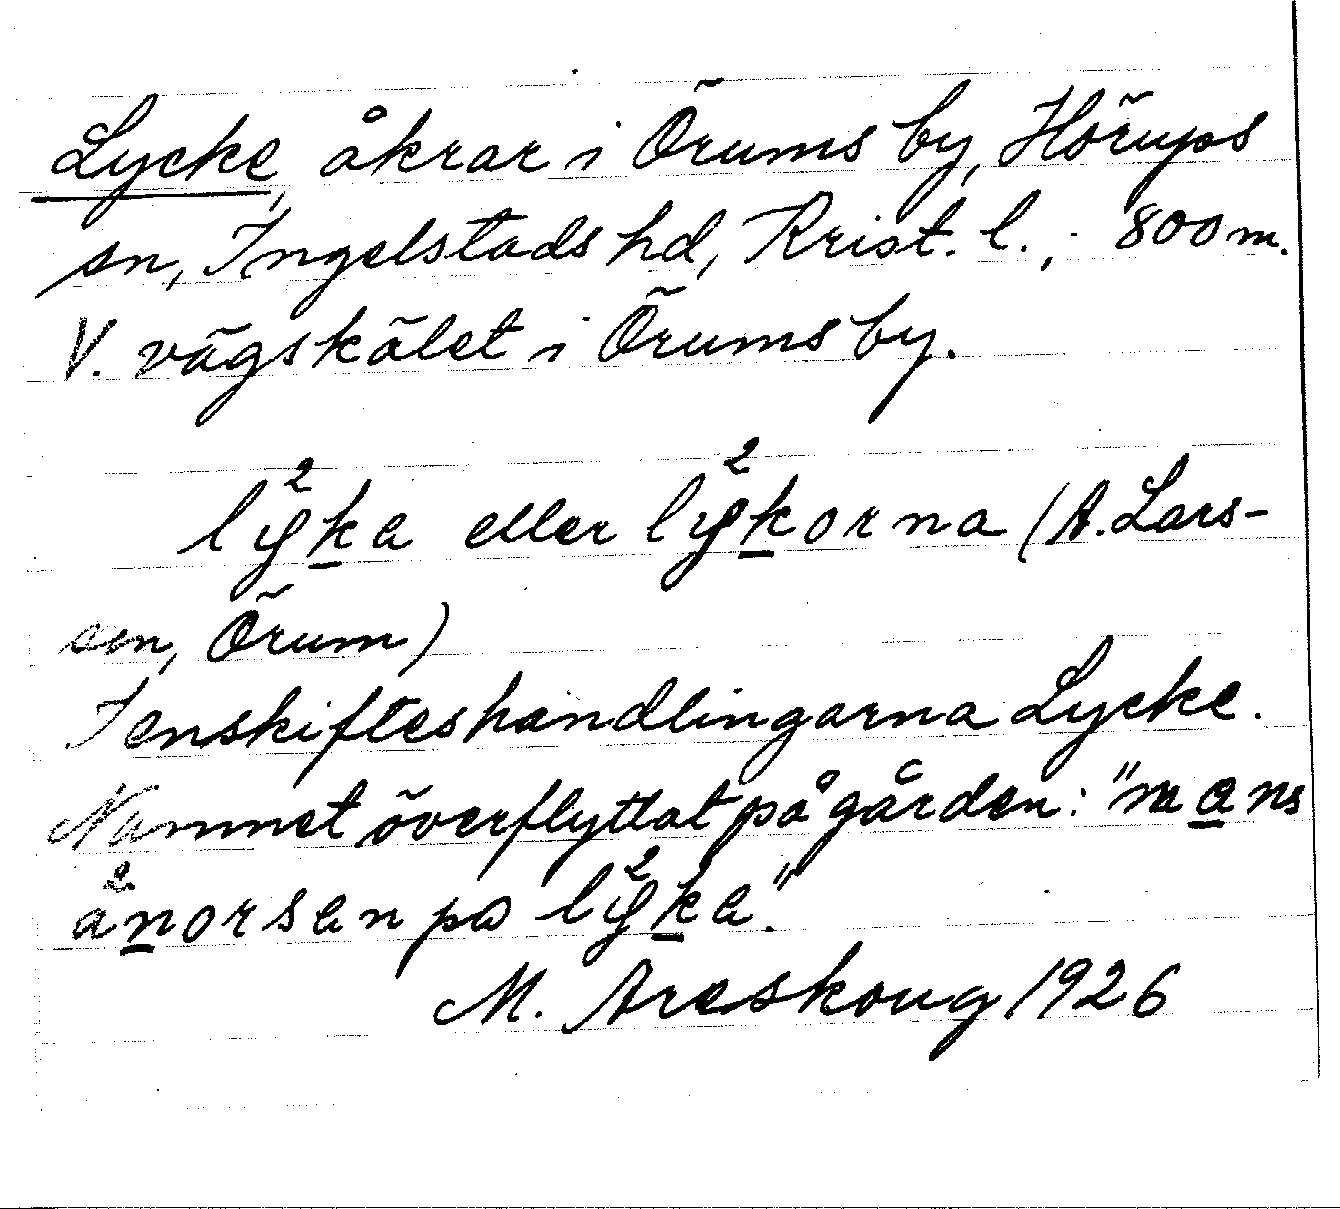 Lycke, åkrar i Örums by, Hörups
sn, Ingelstads hd, Krist. l., 800 m.
V. vägskälet i Örums by.
ly²ka eller ly²korna (A. Lars-
son, Örum)
I enskifteshandlingarna Lycke.
Namnet överflyttat på gården: "mans
å²norsen po ly²ka".
M. Areskoug 1926